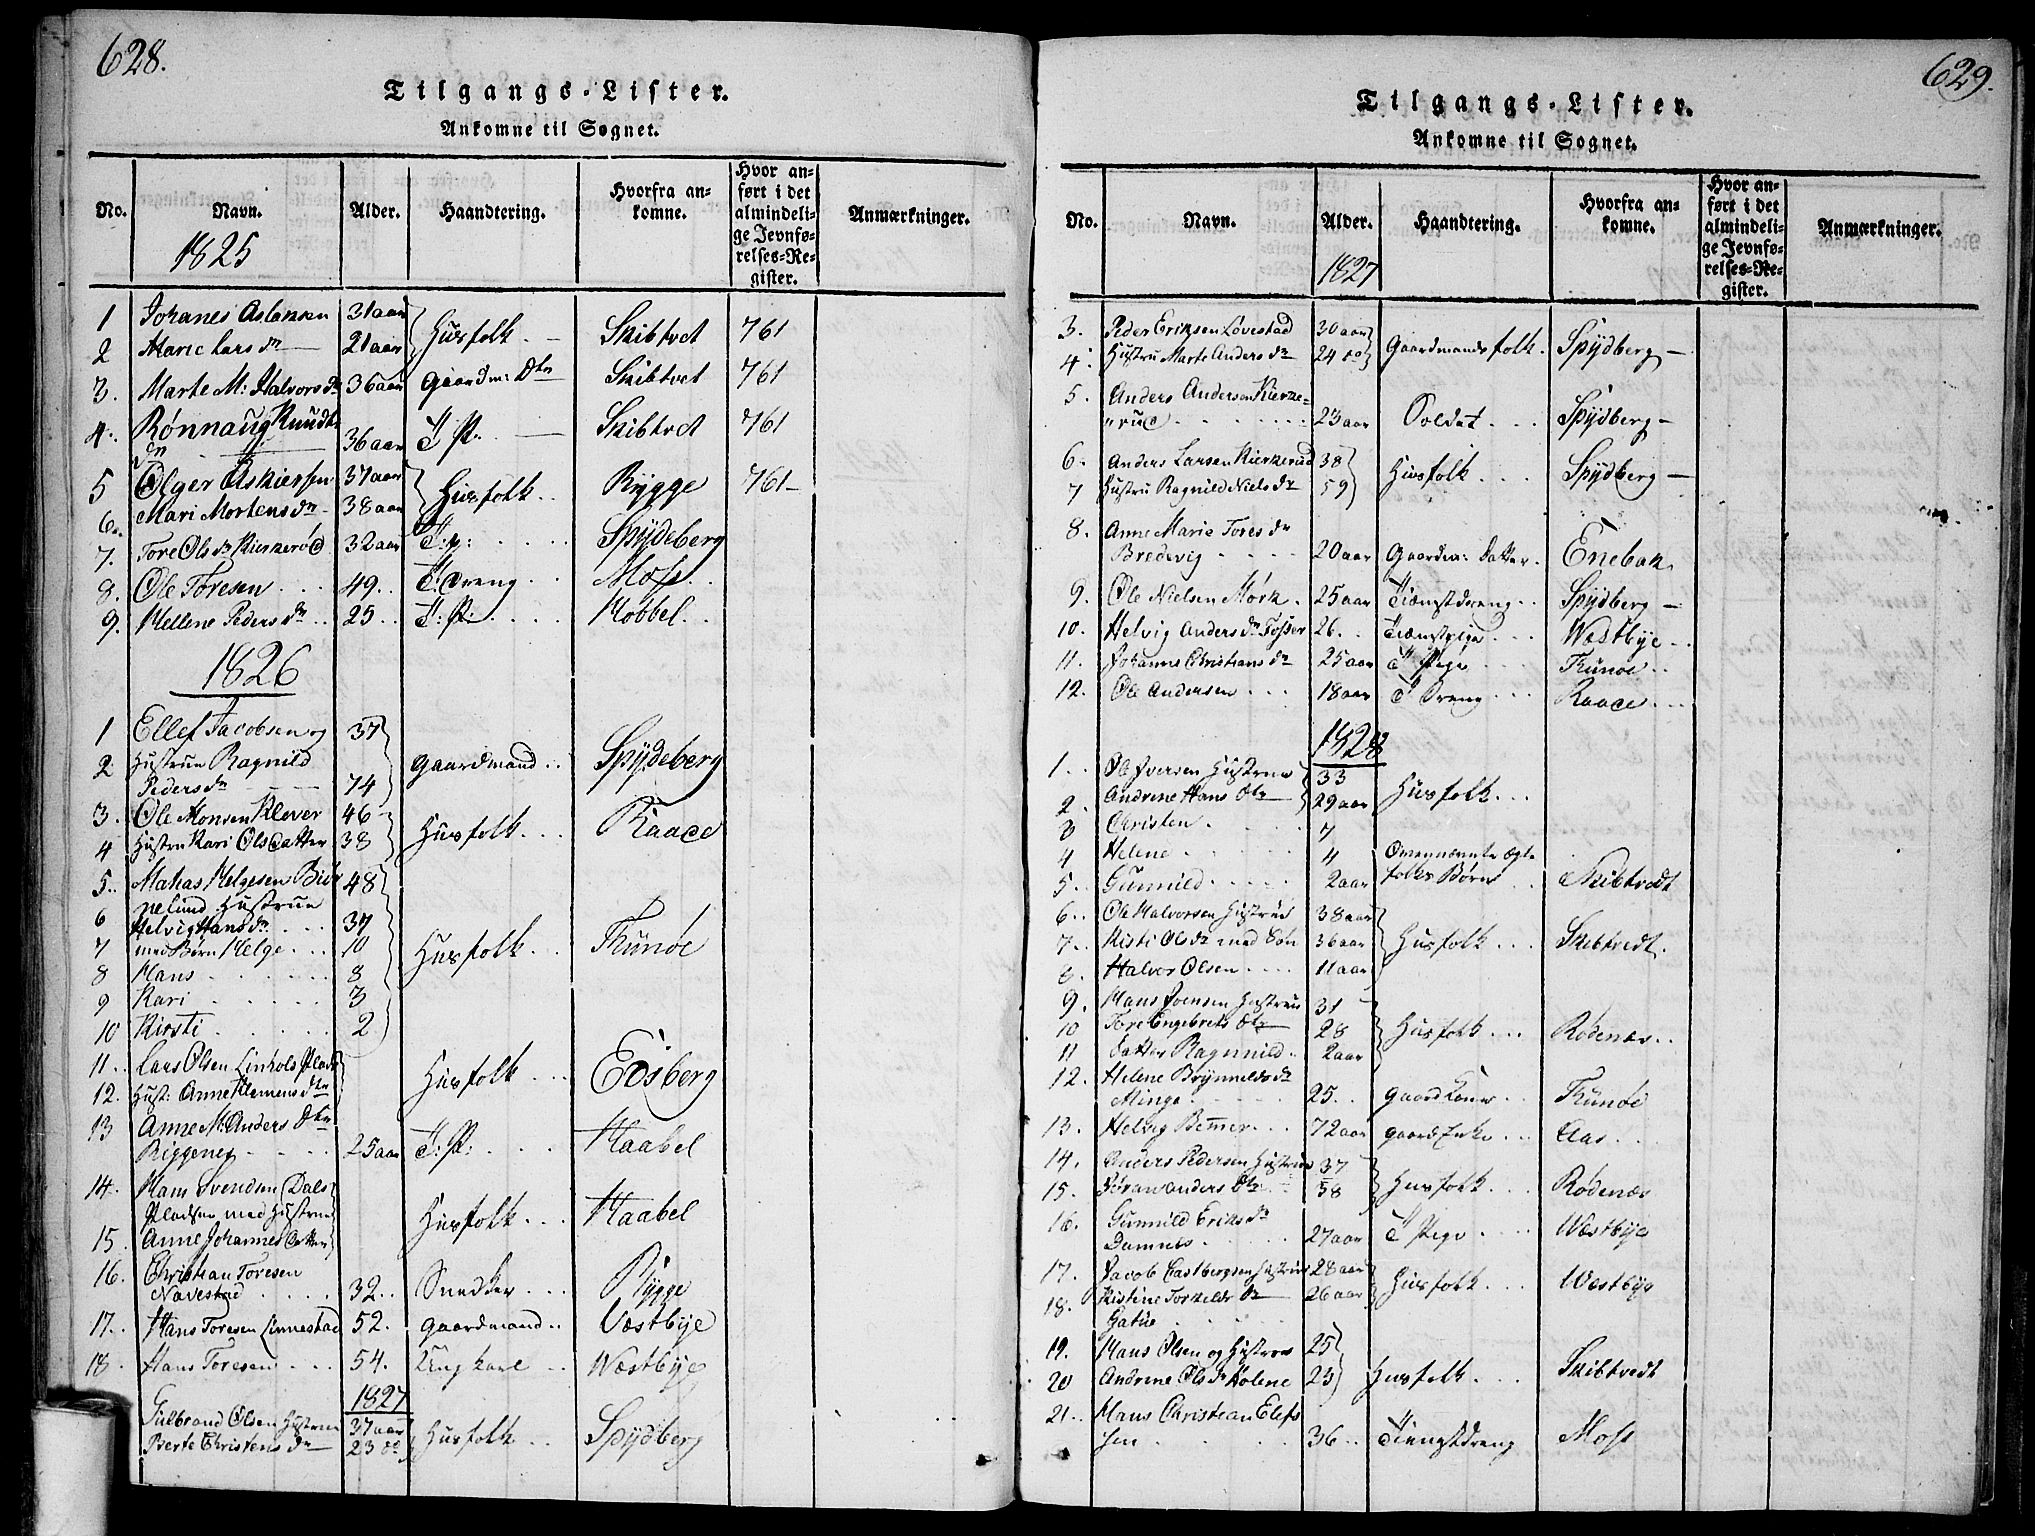 628.
Tilgangs-Lister.
Ankomne til Sognet.
No. Navn. Alder. Haandtering. Hvorfra ankomne. Hvor anført i det almindelige Jevnførelses-Register. Anmærkninger.
1825
1 Johanes Aslaksen 31 aar Husfolk. Skibtvet 761
2 Marie Lars dr 21 aar
3. Marte M: Halvors dr 36 aar Gaardm: Dtr Skibtvet 761
4. Rønnaug Knudts
dr 36 aar T P. Skibtvet 761
5 Olger Askiersen 37 aar Husfolk.. Rygge 761
6. Mari Mortens dr 38 aar
7. Tore Ols dr Kierkerød 32 aar T:p: Spydeberg
8. Ole Toresen 49. T: Dreng Moss.
9. Hellene Peders dr 25 T: P: Hobbel.
1826
1 Ellef Jacobsen og 37
2 Hustrue Ragnild Gaardmand Spydeberg
Peders dr 74
3. Ole Monsen Klever 46 Husfolk Raade
4 Hustru Kari Olsdatter 38
5.. Mathias Helgesen Bier 48
nelund Hustrue
6 Helvig Hans dr 37
7 med Børn Helge 10 Husfolk Thunøe
8 Hans 8
9 Kari 3
10 Kirsti 2
11. Lars Olsen Linhols Plads
12. Hust: Anne Klemens dtr Husfolk Edsberg
13 Anne M: Anders Dtr
Riggenes 25 aar T: P: Haabel
14. Hans Svendsen Dals
Pladsen med Hustrue Husfolk Haabel
15 Anne Johannes Datter
16. Christian Toresen
Navestad 32.. Snedker Rygge
17. Hans Toresen Linnestad 52. Gaardmand Væstbye
18. Hans Toresen 54. Ungkarl Wæstbye
1827
Gulbrand Olsen Hustrue 37 aar Husfolk Spydberg
Berte Christens dr 23 do
629.
Tilgangs-Lister.
Ankomne til Sognet.
No. Navn. Alder. Haandtering. Hvorfra ankomne. Hvor anført i det almindelige Jevnførelses-Register. Anmærkninger.
1827
3. Peder Eriksen Lovestad 30 aar Gaardmandsfolk. Spydberg
4. Hustru Marte Anders dr 24 do
5. Anders Andersen Kierke-
rud 23 aar Soldat Spydberg
6. Anders Larsen Kierkerud 38 Husfolk Spydberg
7 Hustru Ragnild Niels dr 59
8. Anne Marie Tores dr
Bredevig 20 aar Gaardm: Datter. Enebak
9. Ole Nielsen Mørk. 25 aar Tiænstdreng Spydberg
10. Helvig Anders dr Fosser 26.. Tiænstpige Wæstbye
11. Johanne Christians dr 25 aar T Pige Thunøe
12. Ole Andersen 18 aar T Dreng Raade
1828
1. Ole Iversen Hustrue 33
2. Andrine Hans Dtr 29 aar Husfolk
3 Christen 7
4 Helene 4 Ovennævnte Ægte
5.. Gunnild 2 aar folks Børn Skibtvedt
6. Ole Halvorsen Hustrue 38 aar
7. Kisti Ols dr med Søn 36 aar Husfolk Skibtvedt.
8. Halvor Olsen 11 aar
9. Hans Joensen Hustrue 31
10 Tore Engebrets Dtr 28 Husfolk Rødenæs
11 Datter Ragnnild 2 aar
12. Helene Brynnilds dr
Minge 25. Gaard Kone Thunøe
13. Helvig Bemer 72 aar Gaards Enke Aas
14. Anders Pedersen Hustrue 37
15. Søran Anders Dtr 58 Husfolk Rødenæs
16. Gunnild Eriks dr
Damnes 27 aar T Pige Wæstbye
17. Jacob Castbergsen Hustrue 28 aar Husfolk Wæstbye
18. Kistine Torkelds Dr 26 aar
Gatue
19. Hans Olsen og Hustrue 25
20 Andrine Ols dr Holene 23 Husfolk Skibtvedt
21.. Hans Christian Elefs
sen 36.. Tiengstdreng Moss